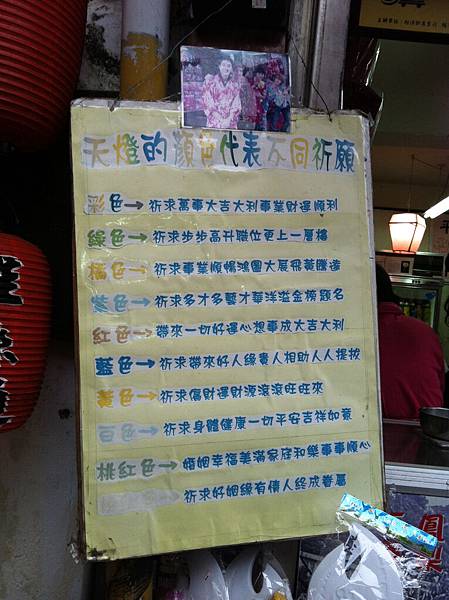 天燈的顏色代表不同祈願
彩色→祈求萬事大吉大利事業財運順利
綠色→祈求步步高升職位更上一層樓
橘色→祈求事業順暢鴻圖大展飛黃騰達
紫色→祈求多才多藝才華洋溢金榜題名
紅色→帶來一切好運心想事成大吉大利
藍色→祈求帶來好人緣貴人相助人人提拔
黃色→祈求偏財運財源滾滾旺旺來
白色→祈求身體健康一切平安吉祥如意
桃紅色→婚姻幸福美滿家庭和樂事事順心
祈求好姻緣有情人終成眷屬